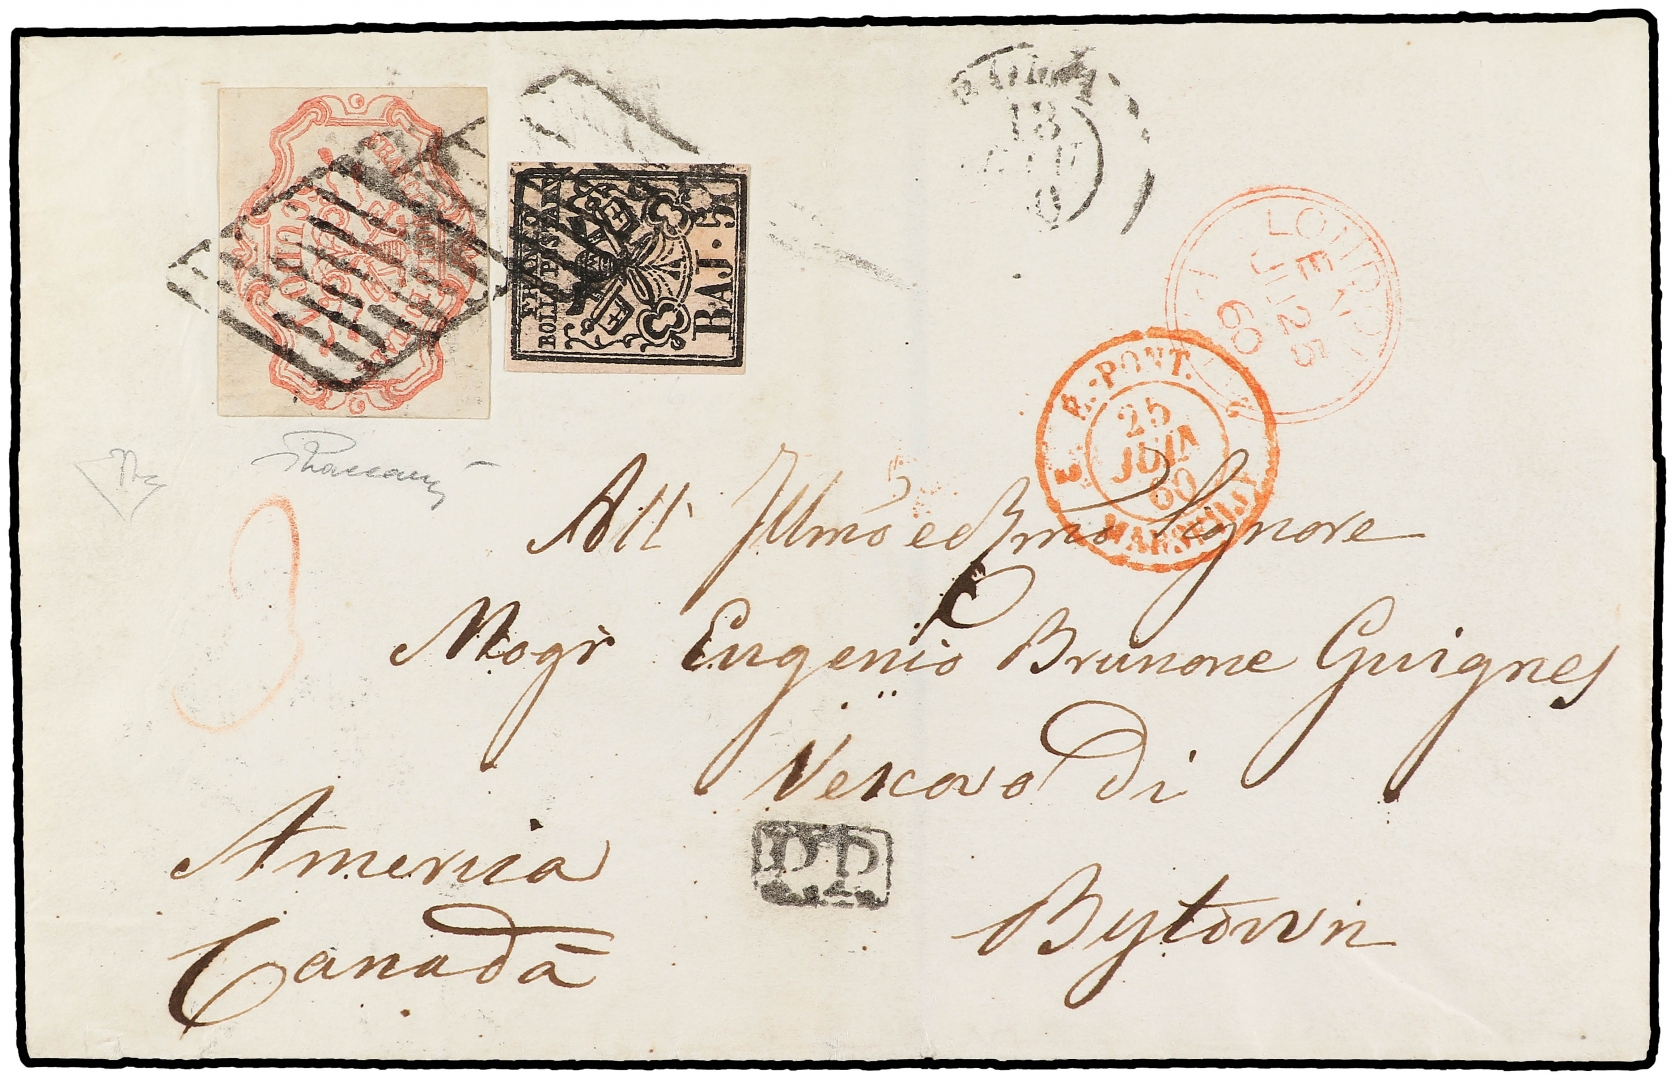 FRANCO
BOLLO POSTALE
BAJ. 5
18
LON
E
JU 25
60
E.-PONT.
25
JUIN
60
MARSEILLE
3
All' Illmo e Rmo Signore
Mogr Eugenio Brunone Guignes
Vescovo di
PD
America
Bytown
Canadà